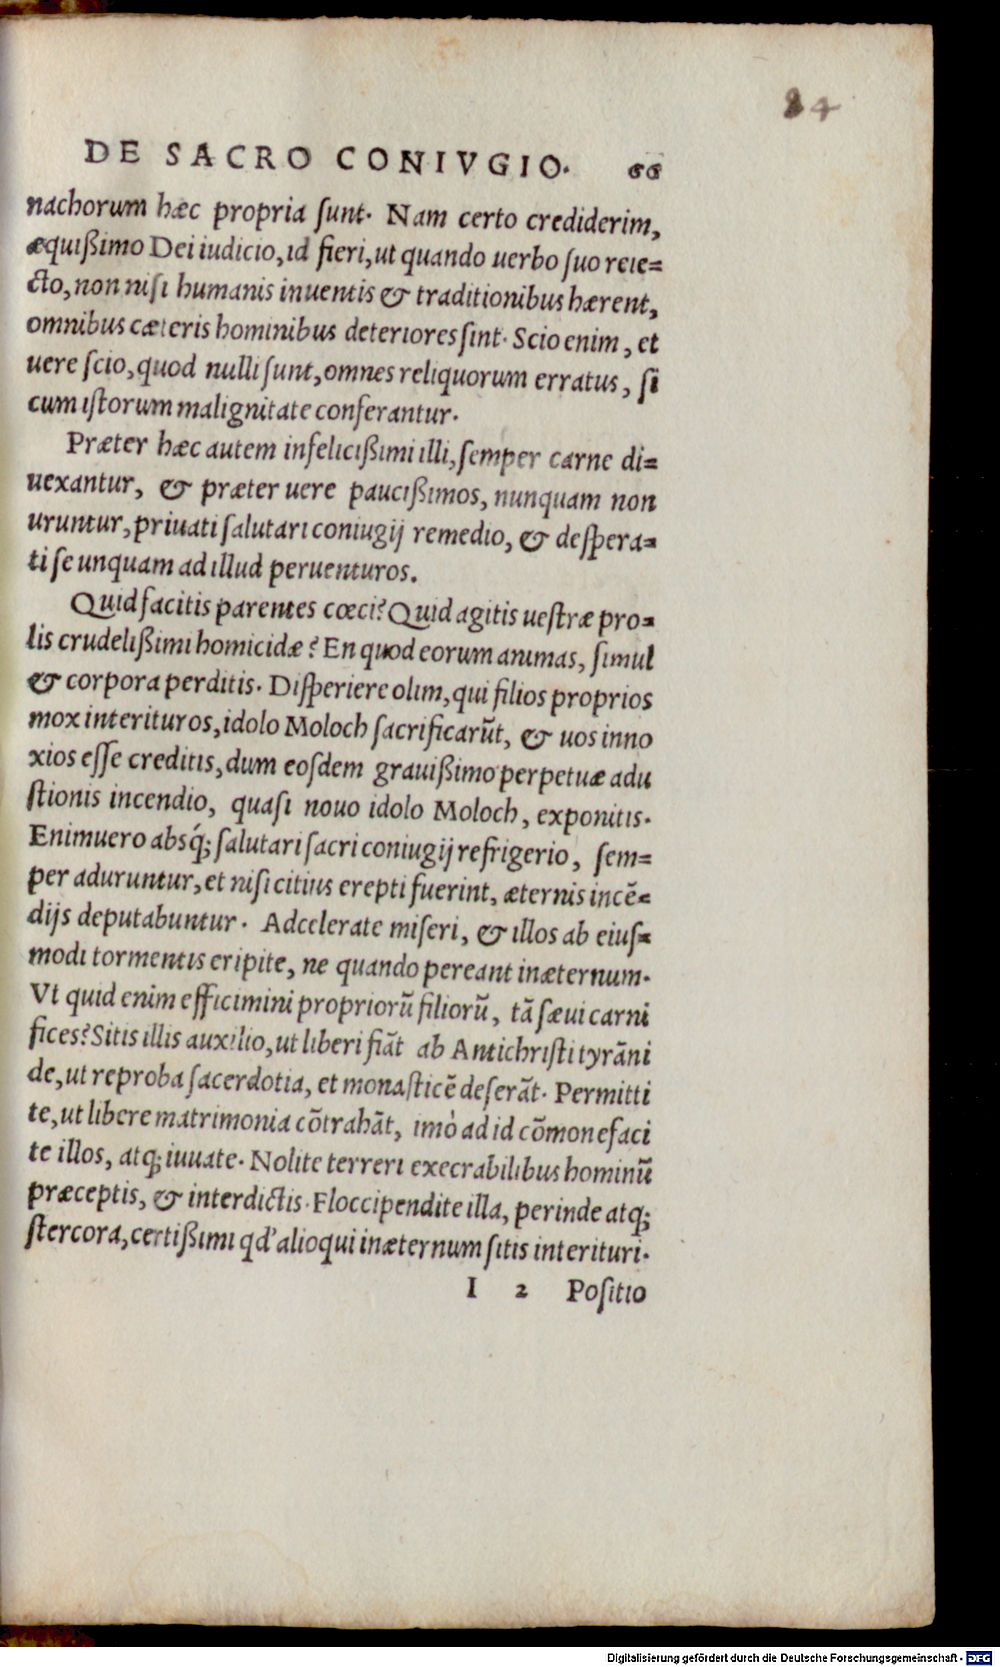 84
DE SACRO CONIVGIO. 66
nachorum hæc propria ſunt. Nam certo crediderim,
æquißimo Dei iudicio, id fieri, ut quando uerbo ſuo reie=
cto, non niſi humanis inuentis & traditionibus hærent,
omnibus cæteris hominibus deteriores ſint. Scio enim, et
uere ſcio, quod nulli ſunt, omnes reliquorum erratus, ſi
cum iſtorum malignitate conferantur.
Præter hæc autem infelicißimi illi, ſemper carne di=
uexantur, & præter uere paucißimos, nunquam non
uruntur, priuati ſalutari coniugij remedio, & deſpera=
ti ſe unquam ad illud peruenturos.
Quid facitis parentes cœci? Quid agitis ueſtræ pro=
lis crudelißimi homicidæ? En quod eorum animas, ſimul
& corpora perditis. Diſperiere olim, qui filios proprios
mox interituros, idolo Moloch ſacrificarũt, & uos inno
xios eſſe creditis, dum eoſdem grauißimo perpetuæ adu
ſtionis incendio, quaſi nouo idolo Moloch, exponitis.
Enimuero absq́; ſalutari ſacri coniugij refrigerio, ſem=
per aduruntur, et niſi citius erepti fuerint, æternis incẽ=
dijs deputabuntur. Adcelerate miſeri, & illos ab eiuſ=
modi tormentis eripite, ne quando pereant inæternum.
Vt quid enim efficimini propriorũ filiorũ, tã ſæui carni
fices? Sitis illis auxilio, ut liberi fiãt ab Antichriſti tyrãni
de, ut reproba ſacerdotia, et monaſticẽ deſerãt. Permitti
te, ut libere matrimonia cõtrahãt, imò ad id cõmonefaci
te illos, atq; iuuate. Nolite terreri execrabilibus hominũ
præceptis, & interdictis. Floccipendite illa, perinde atq;
ſtercora, certißimi qd' alioqui inæternum ſitis interituri.
I 2 Poſitio
Digitalisierung gefördert durch die Deutsche Forschungsgemeinschaft - DFG